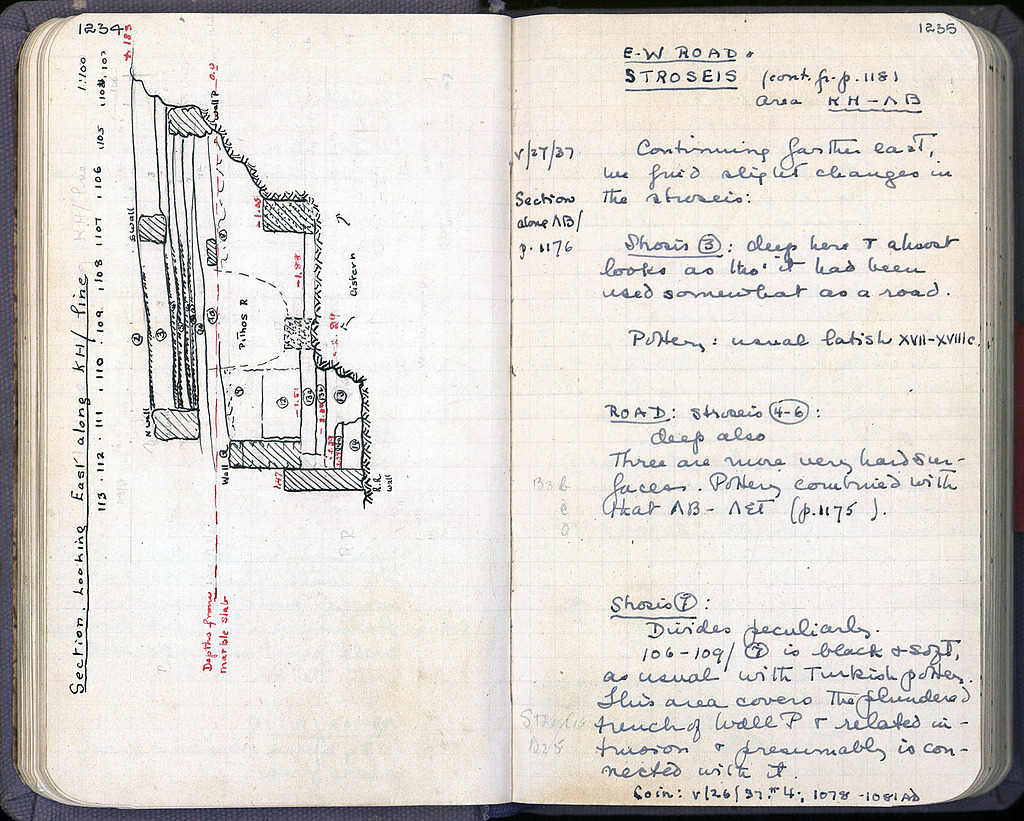 1234
Section. Looking East along KH/ line
1:100
113 . 112 . 111 . 110 . 109 . 108 1107 . 106 . 105 .
+.183
Wall P
0.0
S Wall
N Wall
Pithos R
Cistern
Wall Q
R.R. wall
-1.05
-1.88
-1.51
1.47
2
3
9
12
13
Depths from
marble slab
1235
E-W ROAD.
STROSEIS (cont. fr. p. 1181
area KH-ΛB
V/27/37
Continuing farther east,
we find slight changes in
the stroseis:
Section
along ΛB/
p. 1176
Strosis 3: deep here & almost
looks as tho' it had been
used somewhat as a road.
Pottery: usual latish XVII-XVIIIc.
ROAD: stroseis 4-6:
deep also
Three are more very hard sur-
faces. Pottery combined with
that ΛB- ΛΣΤ (p. 1175 ).
Strosis 7:
Divides peculiarly.
106-109/ 7 is black & soft,
as usual with Turkish pottery.
This area covers the plundered
trench of Wall P & related in-
trusion & presumably is con-
nected with it.
Coin: V/26/37 #4; 1078-1081 AD